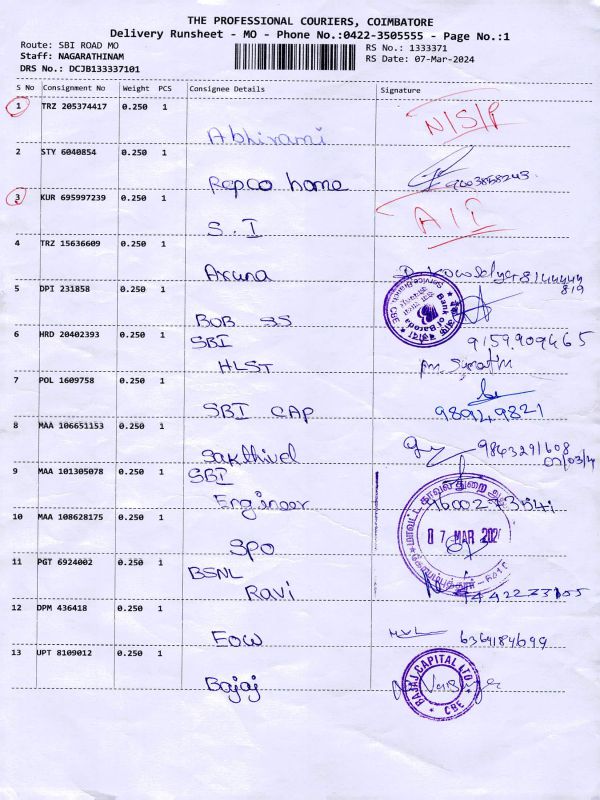 THE PROFESSIONAL COURIERS, COIMBATORE
Delivery Runsheet - MO - Phone No.:0422-3505555 - Page No.:1
Route: SBI ROAD MO
RS No.: 1333371
Staff: NAGARATHINAM
RS Date: 07-Mar-2024
DRS No.: DCJB133337101
S No Consignment No Weight PCS Consignee Details Signature
1 TRZ 205374417 0.250 1
Abhirami N/S/P
2 STY 6040854 0.250 1
Repco home 9003858243
3 KUR 695997239 0.250 1
S.I A/I
4 TRZ 15636609 0.250 1
Aruna
5 DPI 231858 0.250 1
BOB SS
Bank of Baroda
6 HRD 20402393 0.250 1
SBI 9159909465
HLST
7 POL 1609758 0.250 1
SBI CAP 98949821
8 MAA 106651153 0.250 1
Sakthivel 9843291608
07/03/24
9 MAA 101305078 0.250 1
SBI
Engineer 9600273541
10 MAA 108628175 0.250 1
SPO
07 MAR 202
11 PGT 6924002 0.250 1
BSNL
Ravi
12 DPM 436418 0.250 1
EOW
13 UPT 8109012 0.250 1
Bajaj
BAJAJ CAPITAL LTD.
CBE